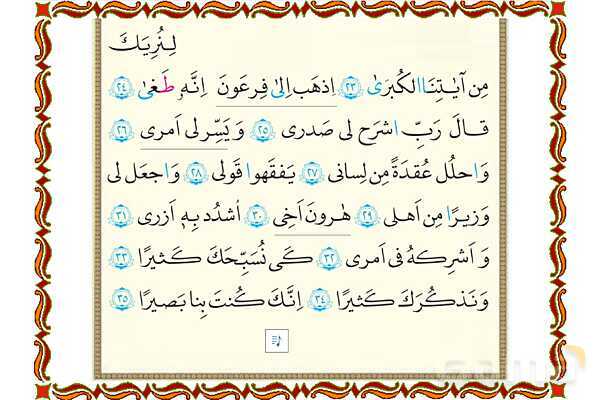 لِنُرِيَكَ
مِن آيَـٰتِنَا الكُبرَىٰ ﴿٢٣﴾ اِذهَب اِلىٰ فِرعَونَ اِنَّهُۥ طَغىٰ ﴿٢٤﴾
قالَ رَبِّ اشرَح لى صَدرى ﴿٢٥﴾ وَ يَسِّر لى اَمرى ﴿٢٦﴾
وَاحلُل عُقدَةً مِن لِسانى ﴿٢٧﴾ يَفقَهوا قَولى ﴿٢٨﴾ وَاجعَل لى
وَزيرًا مِن اَهلى ﴿٢٩﴾ هٰرونَ اَخِى ﴿٣٠﴾ اُشدُد بِهِۦ اَزرى ﴿٣١﴾
وَ اَشرِكهُ فى اَمرى ﴿٣٢﴾ كَى نُسَبِّحَكَ كَثيرًا ﴿٣٣﴾
وَ نَذكُرَكَ كَثيرًا ﴿٣٤﴾ اِنَّكَ كُنتَ بِنا بَصيرًا ﴿٣٥﴾